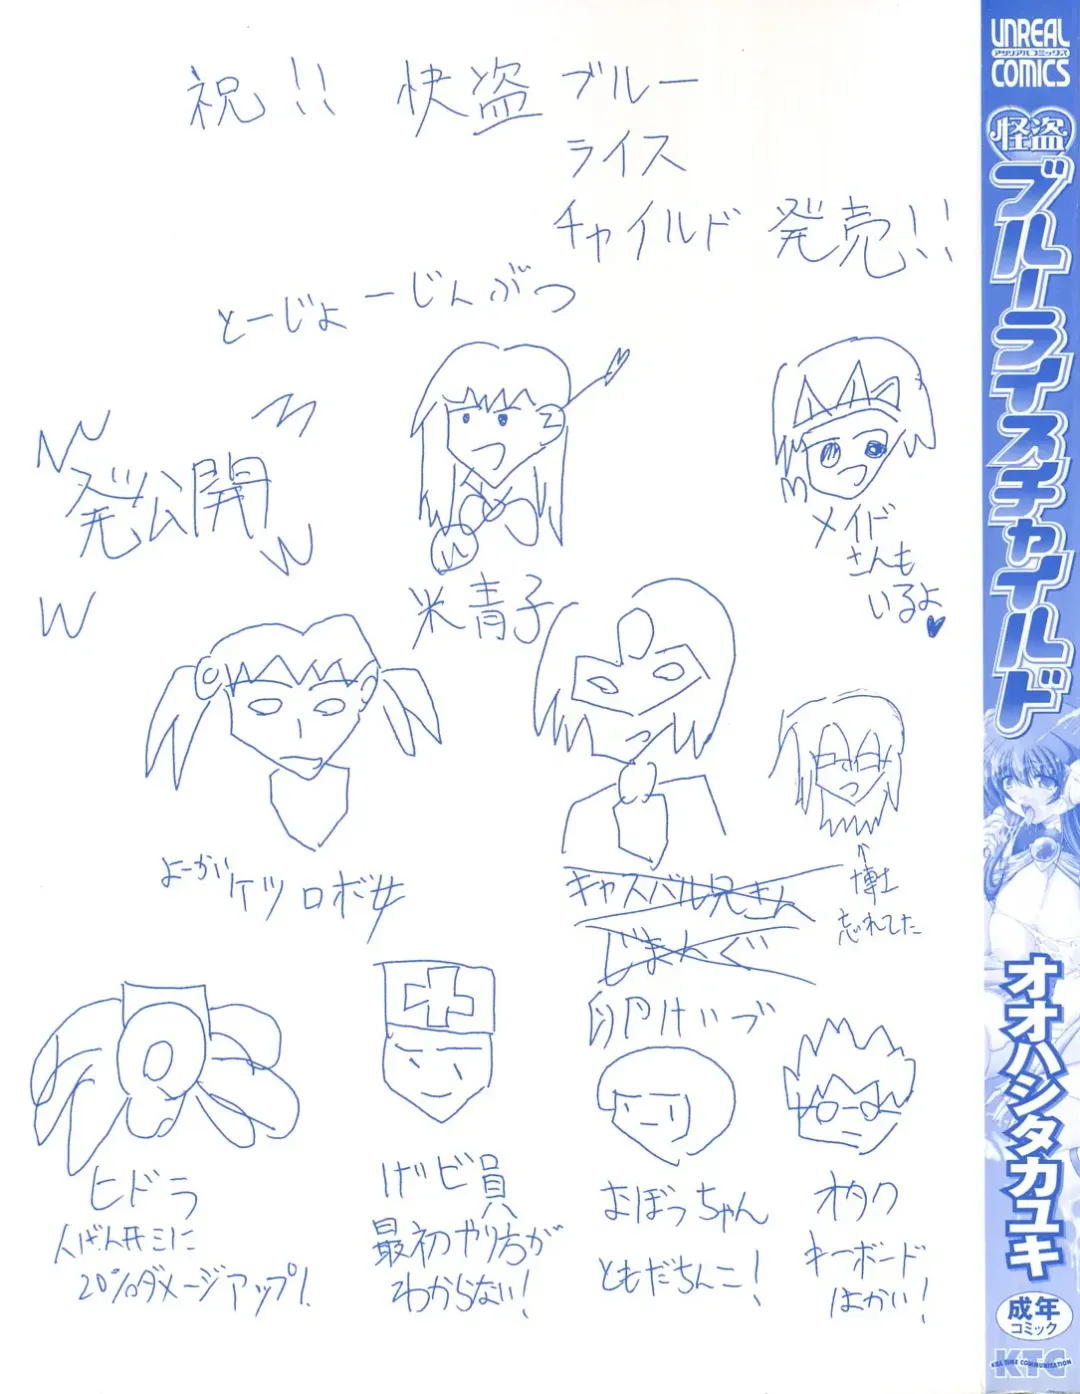 祝!! 快盗 ブルー
ライス
チャイルド 発売!!
とーじょーじんぶつ
発公開
米青子
メイド
さんも
いるよ♥
よーかい ケツロボ女
キャスバル兄さん
じまんぐ
卵月けいブ
↑
博士
忘れてた
ヒドラ
20%ダメージアップ!
げぼビ員
最初やり方が
わからない!
おぼっちゃん
ともだちんこ!
オタク
キーボード
はかい!
UNREAL
アンリアルコミックス
COMICS
怪盗
ブルーライスチャイルド
オオハシタカユキ
成年
コミック
KTC
KILL TIME COMMUNICATION